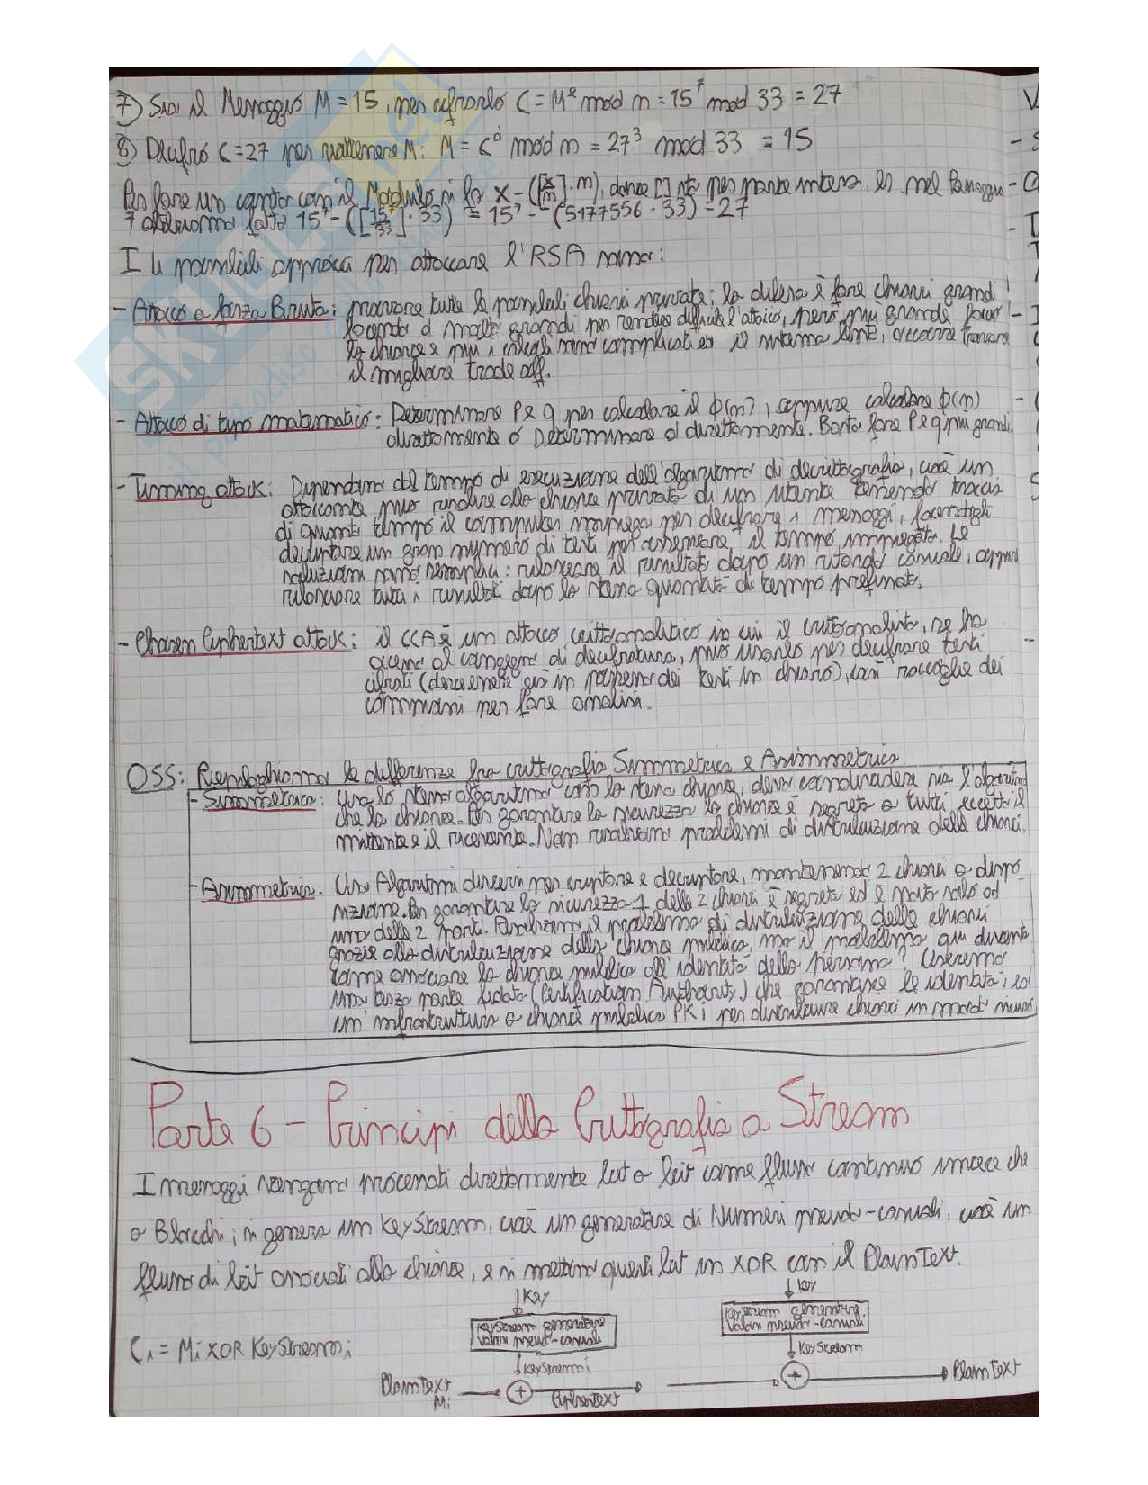 7) Sia il Messaggio M = 15, per cifrarlo C = M^e mod n = 15^7 mod 33 = 27
8) Decifro C = 27 per riottenere M: M = C^d mod n = 27^3 mod 33 = 15
Per fare un conto con il Modulo si fa x - ([x/n] · n), dove [] sta per parte intera. Es nel Passaggio
7 abbiamo fatto 15^7 - ([15^7/33] · 33) = 15^7 - (5177556 · 33) = 27
I 4 possibili approcci per attaccare l'RSA sono:
- Attacco a forza Bruta: provare tutte le possibili chiavi private; la difesa è fare chiavi grandi
facendo d molto grandi per rendere difficile l'attacco, però più grande
la chiave e più i calcoli sono complicati e il sistema lento, occorre trovare
il migliore trade off.
- Attacco di tipo matematico: Determinare P e q per calcolare il φ(n), oppure calcolare φ(n)
direttamente o Determinare d direttamente. Basta fare P e q più grandi.
- Timing attack: Dipendono dal tempo di esecuzione dell'algoritmo di decrittografia, cioè un
attaccante può risalire alla chiave privata di un utente tenendo traccia
di quanto tempo il computer impiega per decifrare i messaggi, facendogli
decriptare un gran numero di testi per osservare il tempo impiegato. Le
soluzioni sono semplici: rilasciare il risultato dopo un ritardo casuale, oppure
rilasciare tutti i risultati dopo la stessa quantità di tempo prefissata.
- Chosen Ciphertext attack: il CCA è un attacco crittoanalitico in cui il crittoanalista, se ha
al congegno di decifratura, può usarlo per decifrare testi
cifrati (dei testi in chiaro), così raccoglie dei
per fare analisi.
OSS: Riepiloghiamo le differenze fra crittografia Simmetrica e Asimmetrica
- Simmetrica: Usa lo stesso algoritmo con la stessa chiave, devo condividere sia l'algoritmo
che la chiave. Per garantire la sicurezza la chiave è segreta a tutti, eccetto il
mittente e il ricevente. Non risolviamo problemi di distribuzione delle chiavi.
- Asimmetrica: Usa Algoritmi diversi per criptare e decriptare, mantenendo 2 chiavi a dispo-
sizione. Per garantire la sicurezza 1 delle 2 chiavi è segreta ed è nota solo ad
una delle 2 parti. il problema di distribuzione delle chiavi
grazie alla distribuzione della chiave pubblica, ma il problema qui diventa
come associare la chiave pubblica all'identità della persona?
una terza parte fidata (Certification Authority) che garantisce le identità; es
un'infrastruttura a chiave pubblica PKI per distribuire chiavi in modo sicuro
Parte 6 - Principi della Crittografia a Stream
I messaggi vengono processati direttamente bit a bit come flusso continuo invece che
a Blocchi; si genera un KeyStream, cioè un generatore di Numeri pseudo-casuali, cioè un
flusso di bit associati alla chiave, e si mettono questi bit in XOR con il PlainText.
Key
Key
KeyStream Generatore
valori pseudo-casuali
KeyStream Generatore
valori pseudo-casuali
Ci = Mi XOR KeyStreami
KeyStreami
KeyStream
PlainText
Mi
+
CipherText
+
PlainText